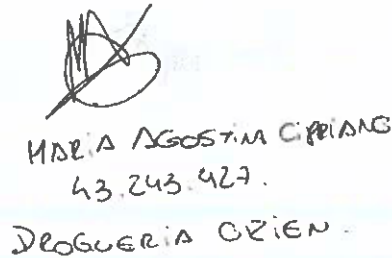 MARIA AGOSTINA CIPRIANO
43.243.427.
DROGUERIA ORIEN.